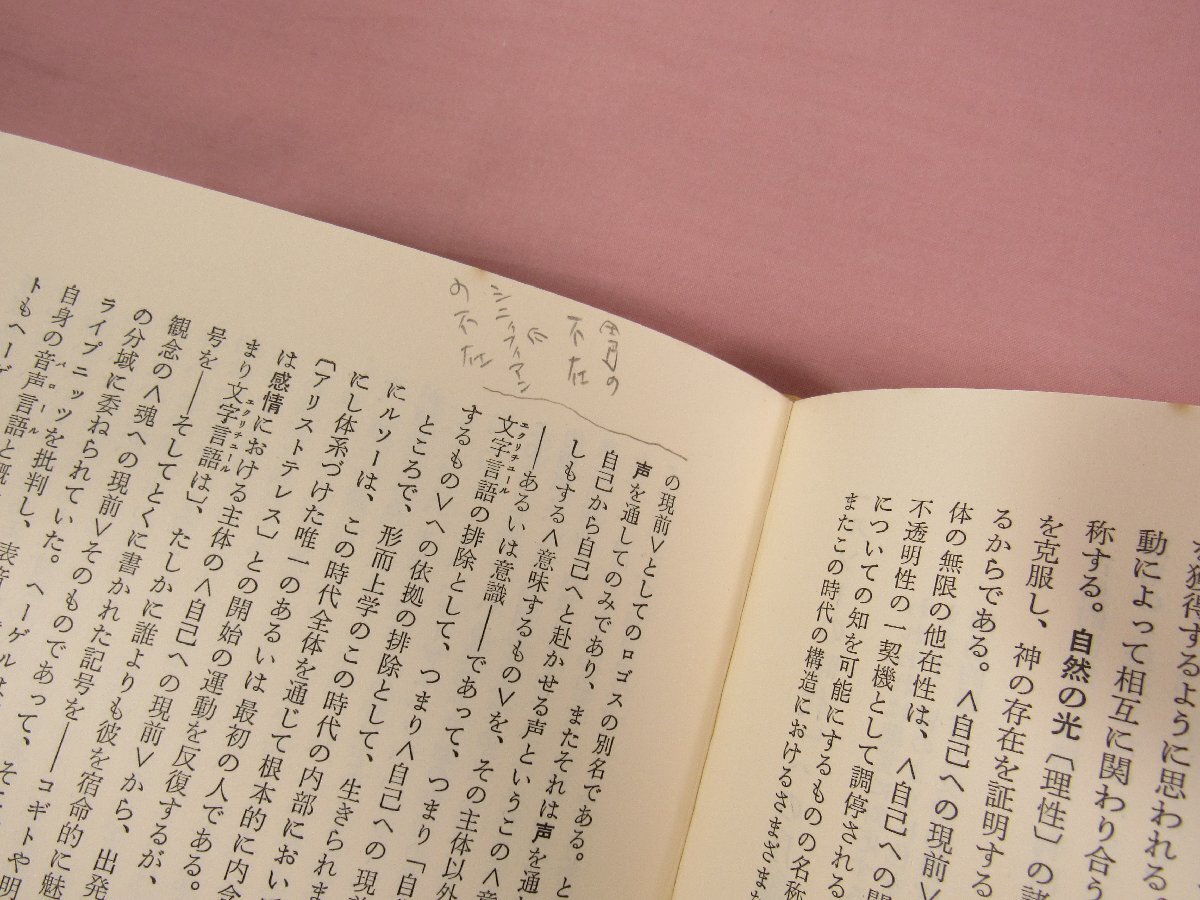 を獲得するように思われる
動によって相互に関わり合う
称する。自然の光〔理性〕の諸
を克服し、神の存在を証明する
るからである。〈自己への現前〉
体の無限の他在性は、〈自己への
不透明性の一契機として調停される
についての知を可能にするものの名称
またこの時代の構造におけるさまざまな
の現前〉としてのロゴスの別名である。と
声を通してのみであり、またそれは声を通
自己から自己へと赴かせる声というこの〈意
しもする〈意味するもの〉を、その主体以外
――あるいは意識――であって、つまり「自
エクリチュール
文字言語の排除として、つまり〈自己への現前
するもの〉への依拠の排除として、生きられま
ところで、形而上学のこの時代の内部におい
にルソーは、この時代全体を通じて根本的に内含
にし体系づけた唯一のあるいは最初の人である。
〔アリストテレス〕との開始の運動を反復するが、
は感情における主体の〈自己への現前〉から、出発
エクリチュール
まり文字言語は〕、たしかに誰よりも彼を宿命的に魅
号を――そしてとくに書かれた記号を――コギトや明
観念の〈魂への現前〉そのものであって、そ
の分域に委ねられていた。ヘーゲルは
ライプニッツを批判し、表音
パロール
自身の音声言語と概
トもヘーゲ
音の
不在
シニフィアン
の不在